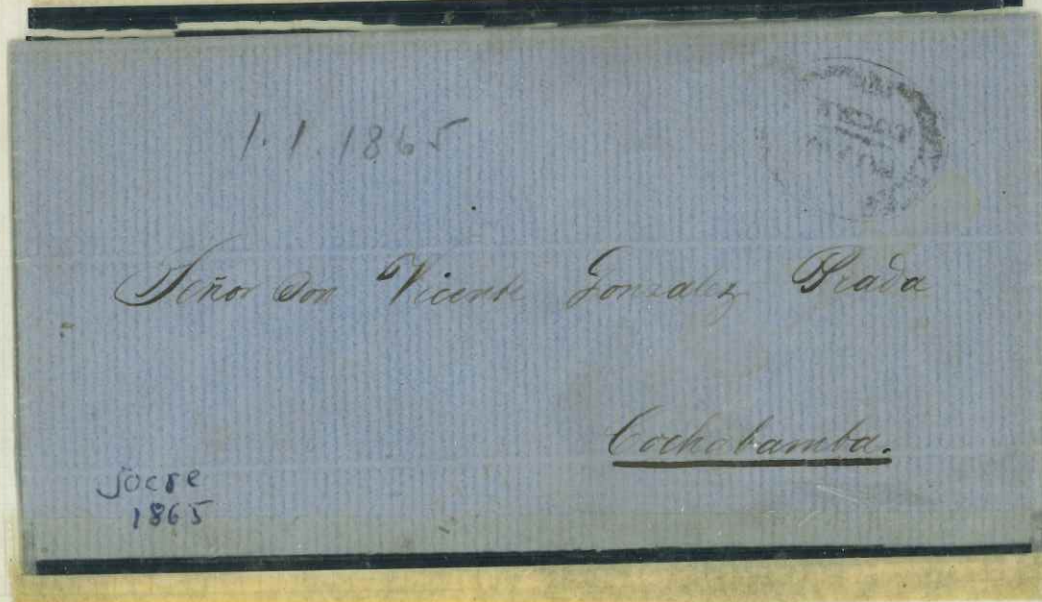 1.1.1865
Señor Don Vicente Gonzalez Prada
Cochabamba.
Sucre
1865